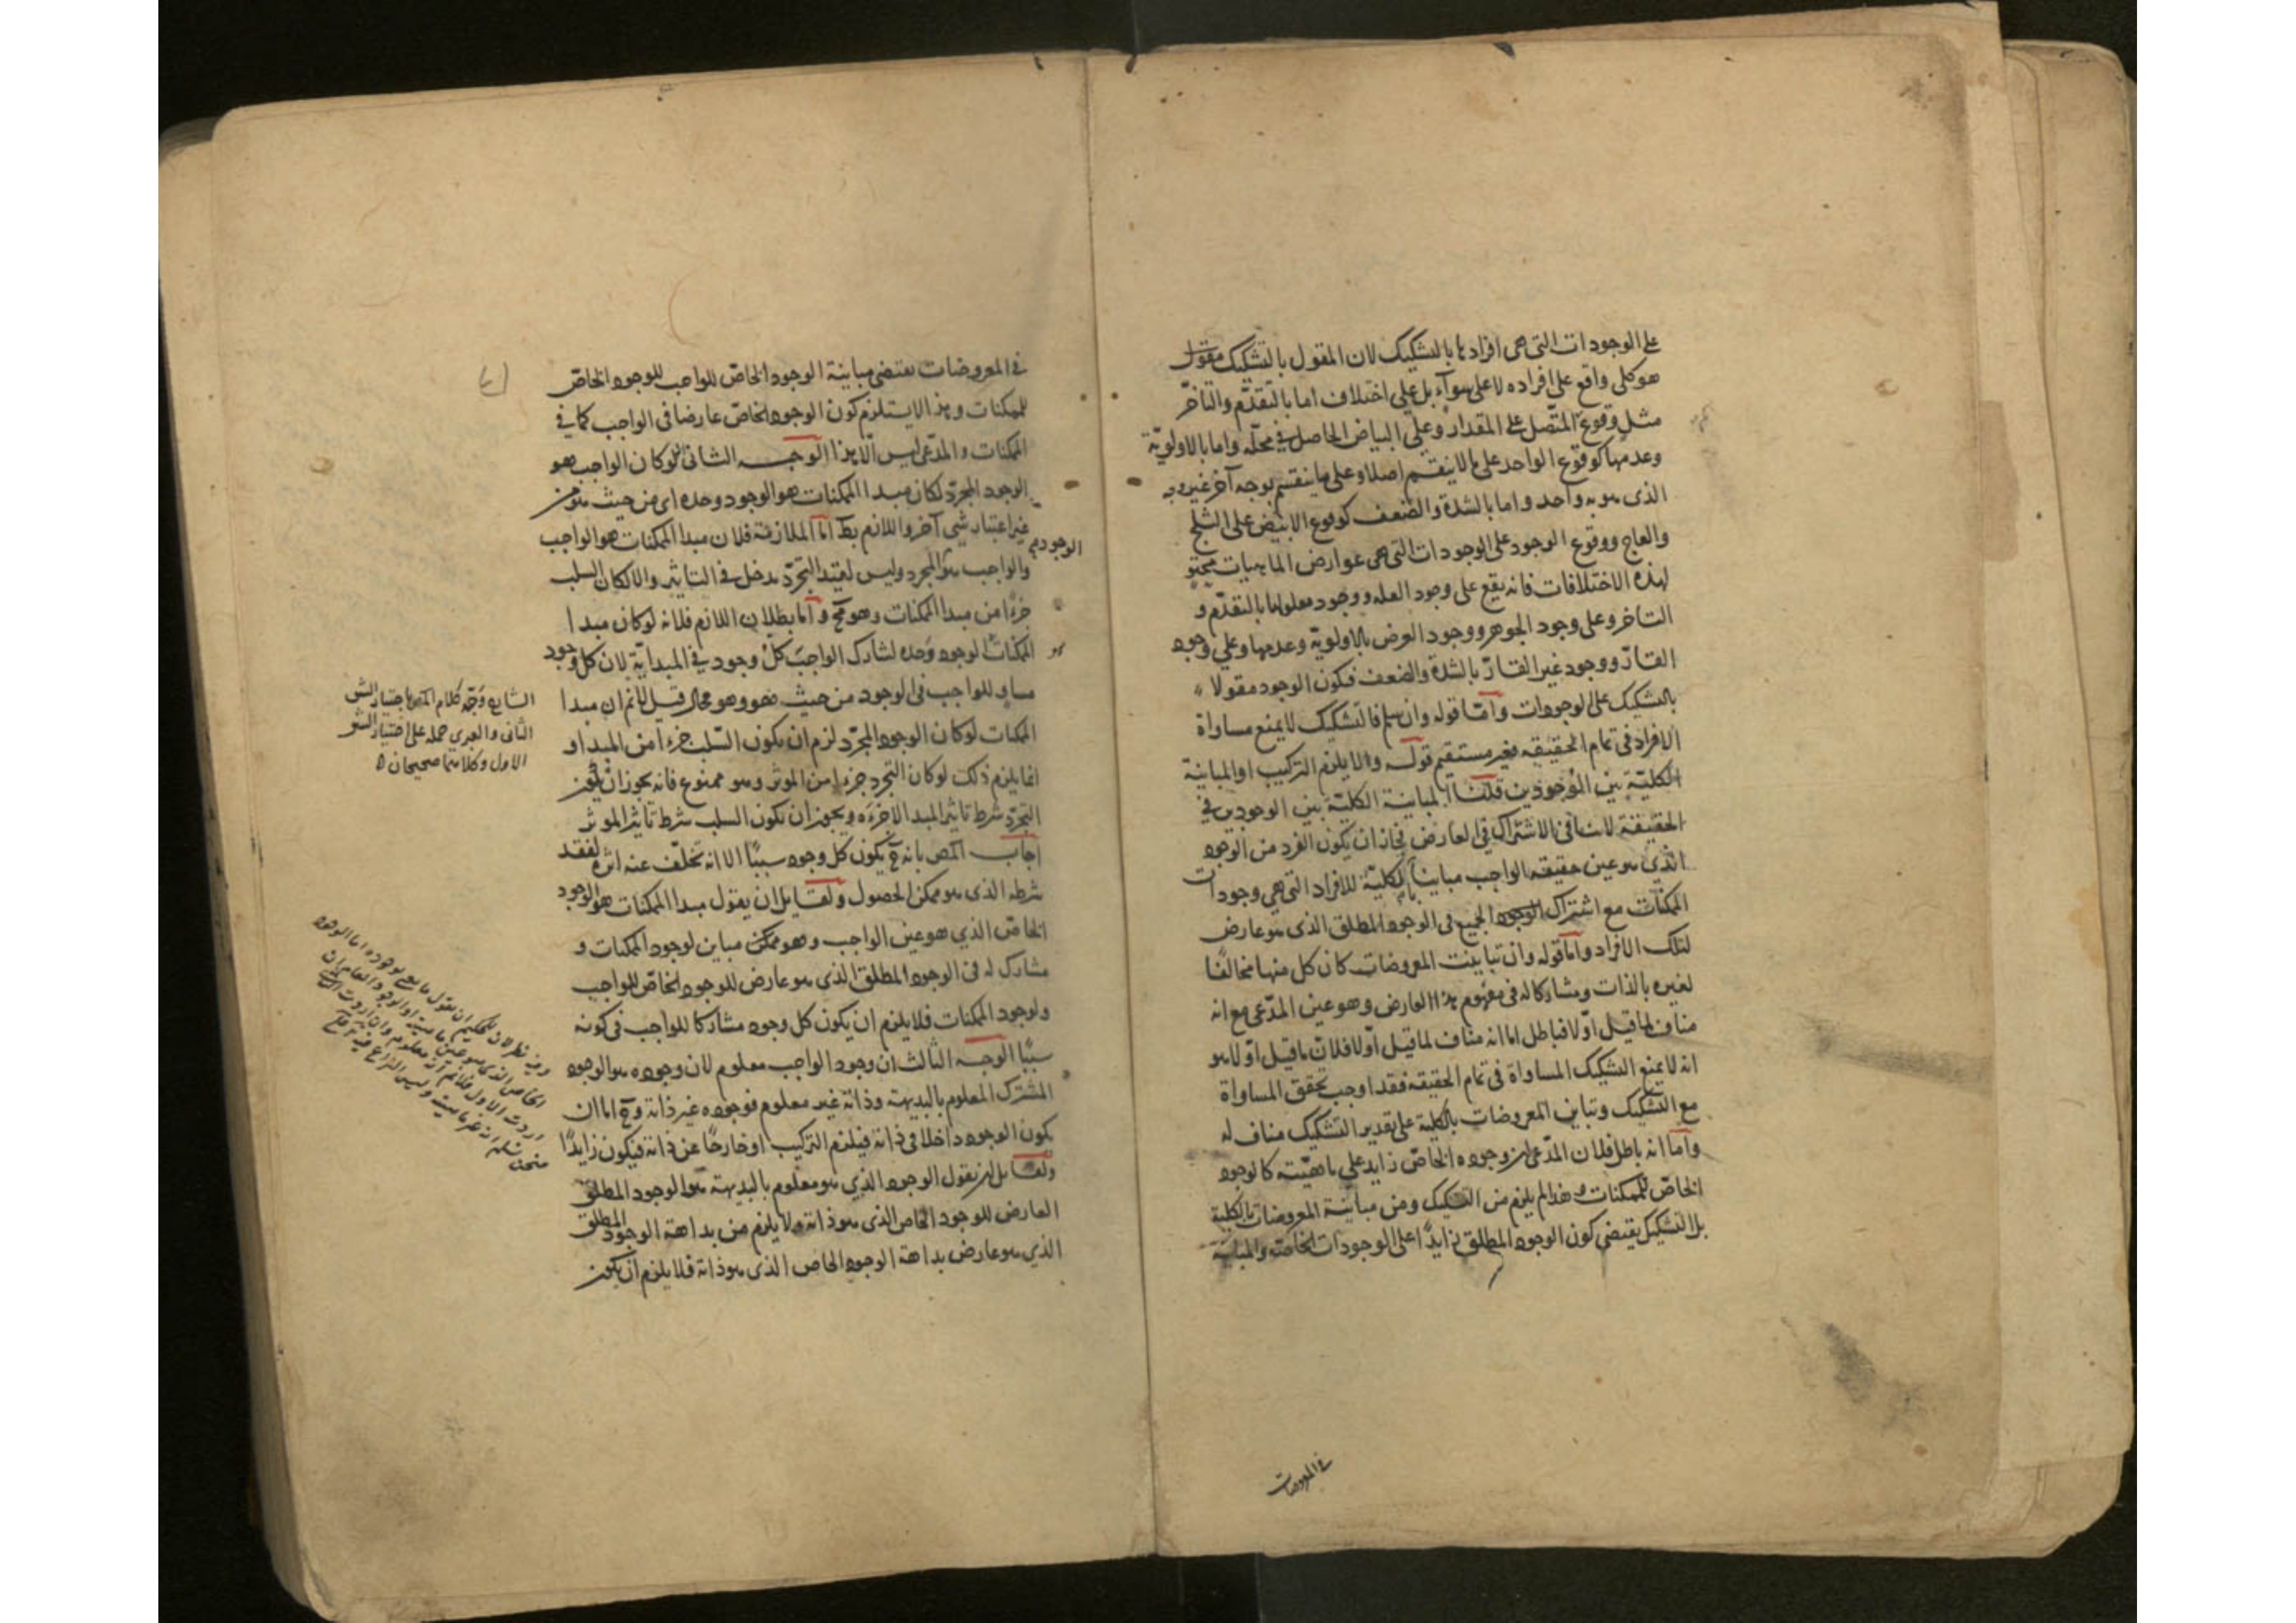 على الوجودات التى هى افرادها بالتشكيك لان المقول بالتشكيك
هو كلى واقع على افراده لا على سوآء بل على اختلاف اما بالتقدّم والتأخّر
مثل وقوع المتّصل على المقدار وعلى البياض الحاصل فى محلّه واما بالاولويّة
وعدمها كوقوع الواحد على ما لا ينقسم اصلا وعلى ما ينقسم بوجه آخر غير وجه
الذى هو به واحد واما بالشدة والضعف كوقوع الابيض على الثلج
والعاج ووقوع الوجود على الوجودات التى هى عوارض الماهيات
لهذه الاختلافات فانه يقع على وجود العلة ووجود معلولها بالتقدّم و
التاخر وعلى وجود الجوهر ووجود العرض بالاولويّة وعدمها وعلى وجود
القارّ ووجود غير القارّ بالشدة والضعف فيكون الوجود مقولا
بالتشكيك على الوجودات وامّا قوله وان سلم فالتشكيك لا يمنع مساواة
الافراد فى تمام الحقيقه فغير مستقيم قوله والا يلزم التركيب او المباينة
الكليّة بين الوجودين قلنا المباينة الكليّة بين الوجودين فى
الحقيقة لا ينافى الاشتراك فى العارض فجاز ان يكون الفرد من الوجود
الذى هو عين حقيقة الواجب مبايناً بالكليّة للافراد التى هى وجودات
الممكنات مع اشتراك الجميع فى الوجود المطلق الذى هو عارض
لتلك الافراد واما قوله وان تباينت المعروضات كان كل منها مخالفًا
لغيره بالذات ومشاركا له فى مفهوم هذا العارض وهو عين المدّعى مع انه
مناف لما قيل اوّلا فباطل اما انه مناف لما قيل اوّلا فلانّ ما قيل اوّلا هو
انه لا يمنع التشكيك المساواة فى تمام الحقيقه فقد اوجب تحقق المساواة
مع التشكيك وتباين المعروضات بالكلية على تقدير التشكيك مناف له
واما انه باطل فلان المدّعى ان وجوده الخاصّ زايد على ماهيّته كالوجود
الخاصّ للممكنات وهذا لم يلزم من التشكيك ومن مباينة المعروضات بالكلية
بل التشكيك يقتضى كون الوجود المطلق زايدًا على الوجودات الخاصّة والمباينة
فى المعروضات
فى المعروضات يقتضى مباينة الوجود الخاصّ للواجب للوجود الخاصّ
للممكنات وهذا لا يستلزم كون الوجود الخاصّ عارضا فى الواجب كما فى
الممكنات والمدّعى ليس الّا هذا الوجه الثانى لو كان الواجب هو
الوجود المجرّد لكان مبدا الممكنات هو الوجود وحده اى من حيث هو من
غير اعتبار شىء آخر واللازم بط امّا الملازمة فلان مبدا الممكنات هو الواجب
الوجود
والواجب هو المجرد وليس لقيد التجرّد مدخل فى التاثير والا لكان السلب
جزءًا من مبدا الممكنات وهو مح وامّا بطلان اللازم فلانه لو كان مبدا
الممكنات الوجود وحده لشارك الواجب كلّ وجود فى المبدايّة لان كل وجود
مساو للواجب فى الوجود من حيث هو وهو محال قيل لا نم ان مبدا
الممكنات لو كان الوجود المجرّد لزم ان يكون السّلب جزءا من المبدا و
انما يلزم ذلك لو كان التجرد جزءا من الموثر وهو ممنوع فانه يجوز ان يكون
التجرّد شرط تاثير المبدا لا جزءه ويجوز ان يكون السلب شرط تاثير الموثر
اجاب المص بانه ح يكون كل وجود سببًا الا انه تخلّف عنه اثره لفقد
شرطه الذى هو ممكن الحصول ولقايل ان يقول مبدا الممكنات هو الوجود
الخاصّ الذى هو عين الواجب وهو مباين لوجود الممكنات و
مشارك له فى الوجود المطلق الذى هو عارض للوجود الخاصّ للواجب
ولوجود الممكنات فلا يلزم ان يكون كل وجود مشاركا للواجب فى كونه
سببًا الوجه الثالث ان وجود الواجب معلوم لان وجوده هو الوجود
المشترك المعلوم بالبديهة وذاته غير معلوم فوجوده غير ذاته وح اما ان
يكون الوجود داخلا فى ذاته فيلزم التركيب او خارجًا عن ذاته فيكون زايدًا
ولقايل ان يقول الوجود الذى هو معلوم بالبديهة هو الوجود المطلق
العارض للوجود الخاص الذى هو ذاته ولا يلزم من بداهة الوجود المطلق
الذى هو عارض بداهة الوجود الخاص الذى هو ذاته فلا يلزم ان يكون
الشارح وجّه كلام المص باختيار الشق
الثانى والعبرى حمله على اختيار الشق
الاول وكلاهما صحيحان